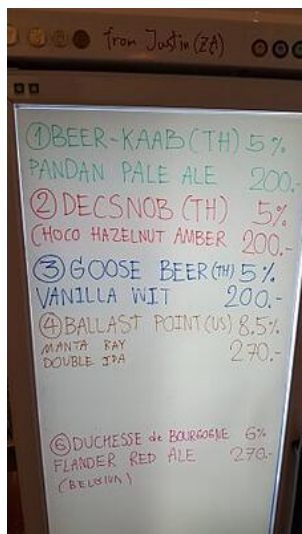 from Justin (ZA)
①BEER-KAAB (TH) 5%
PANDAN PALE ALE 200.-
②DECSNOB (TH) 5%
CHOCO HAZELNUT AMBER 200.-
③GOOSE BEER (TH) 5%
VANILLA WIT 200.-
④BALLAST POINT (US) 8.5%
MANTA RAY
DOUBLE IPA 270.-
⑥DUCHESSE de BOURGOGNE 6%
FLANDER RED ALE 270.-
(BELGIUM)